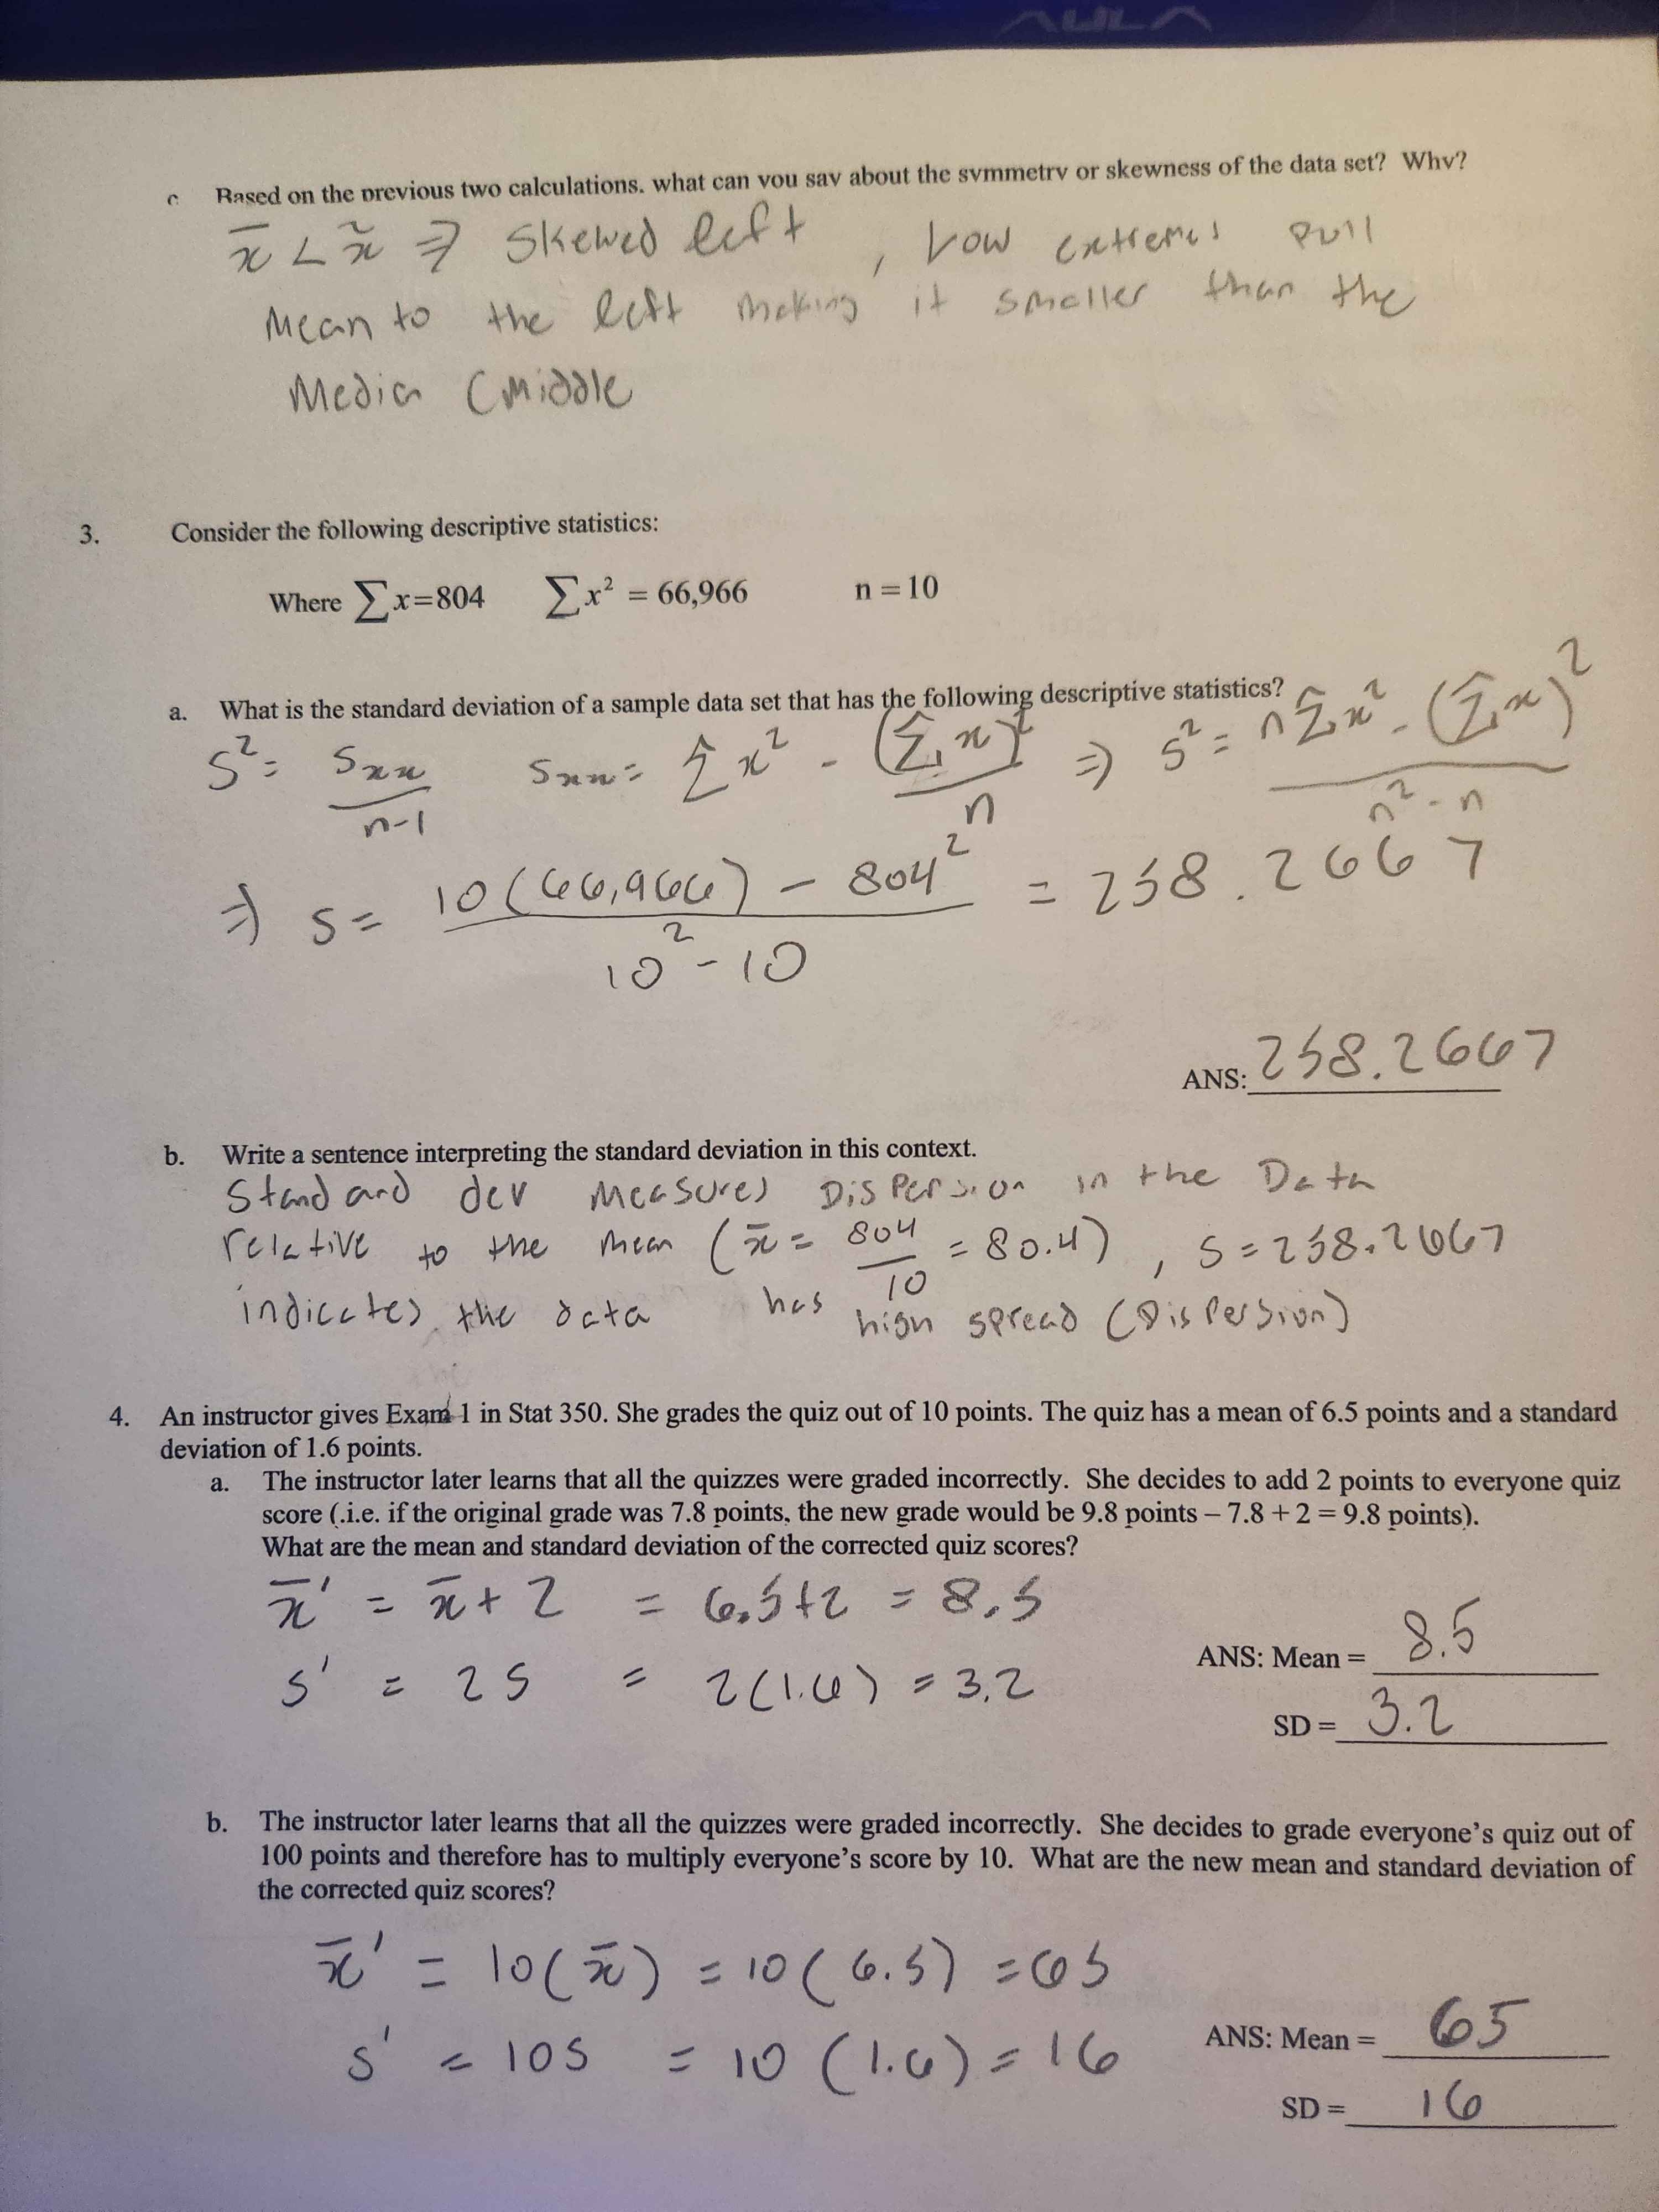 AULA
c. Based on the previous two calculations. what can you say about the symmetry or skewness of the data set? Why?
x̄ < x̃ ⇒ Skewed left , Low extremes pull
Mean to the left making it smaller than the
Median (Middle
3. Consider the following descriptive statistics:
Where ∑x=804 ∑x² = 66,966 n = 10
a. What is the standard deviation of a sample data set that has the following descriptive statistics?
S² = Sxx/(n-1) Sxx = ∑x² - (∑x)²/n ⇒ s² = (n∑x² - (∑x)²)/(n² - n)
⇒ s = (10(66,966) - 804²)/(10² - 10) = 258.2667
ANS: 258.2667
b. Write a sentence interpreting the standard deviation in this context.
Standard dev measures Dispersion in the Data
relative to the mean (x̄ = 804/10 = 80.4) , s = 258.2667
indicates the data has high spread (Dispersion)
4. An instructor gives Exam 1 in Stat 350. She grades the quiz out of 10 points. The quiz has a mean of 6.5 points and a standard
deviation of 1.6 points.
a. The instructor later learns that all the quizzes were graded incorrectly. She decides to add 2 points to everyone quiz
score (.i.e. if the original grade was 7.8 points, the new grade would be 9.8 points – 7.8 + 2 = 9.8 points).
What are the mean and standard deviation of the corrected quiz scores?
x̄' = x̄ + 2 = 6.5+2 = 8.5
ANS: Mean = 8.5
s' = 2s = 2(1.6) = 3.2
SD = 3.2
b. The instructor later learns that all the quizzes were graded incorrectly. She decides to grade everyone’s quiz out of
100 points and therefore has to multiply everyone’s score by 10. What are the new mean and standard deviation of
the corrected quiz scores?
x̄' = 10(x̄) = 10(6.5) = 65
ANS: Mean = 65
s' = 10s = 10(1.6) = 16
SD = 16